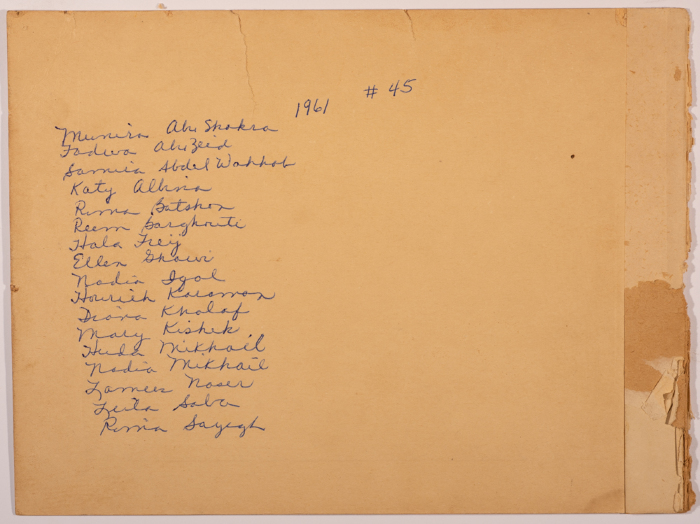 1961 # 45
Munira Abu Shakra
Fadwa Abu Zeid
Samira Abdel Wahhab
Katy Albina
Rima Batshon
Reem Barghouti
Hala Freij
Ellen Ghawi
Nadia Igal
Hourieh Karaman
Diana Khalaf
Mary Kishek
Huda Mikhail
Nadia Mikhail
Lamees Naser
Leila Saba
Rima Sayegh